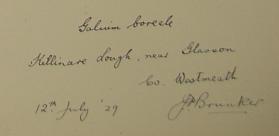 Galium boreale
Killinure Lough, near Glasson
Co. Westmeath
12th July '29
JPBrunker